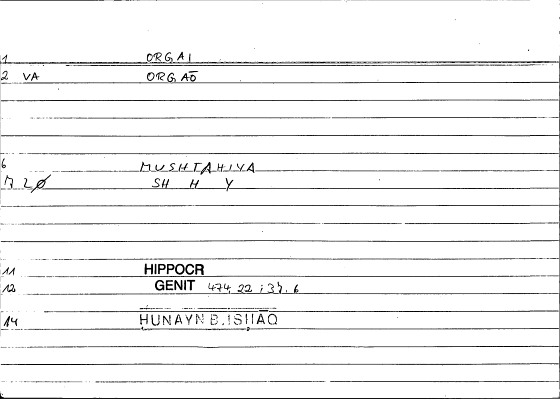 1 ORGAI
2 VA ORGAŌ
6 MUSHTAHIYA
7 20 SH H Y
11 HIPPOCR
12 GENIT 474 22 ; 34. 6
14 HUNAYN B. ISḤĀQ